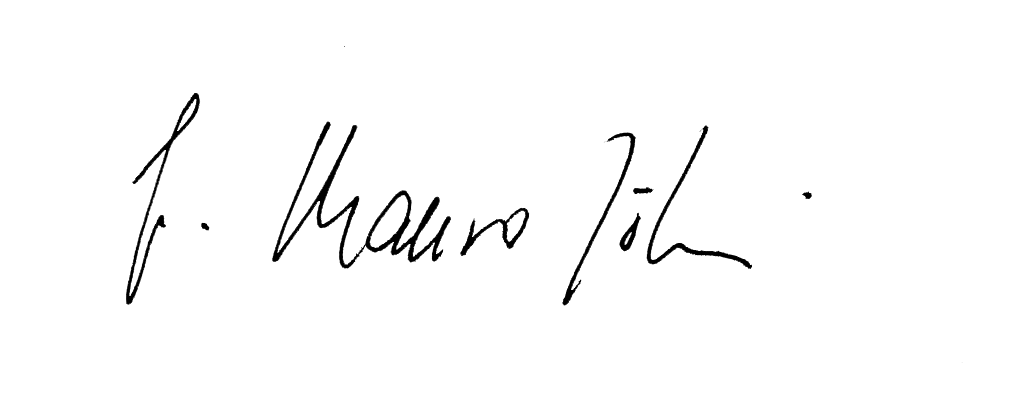 fr. Mauro Jöhri